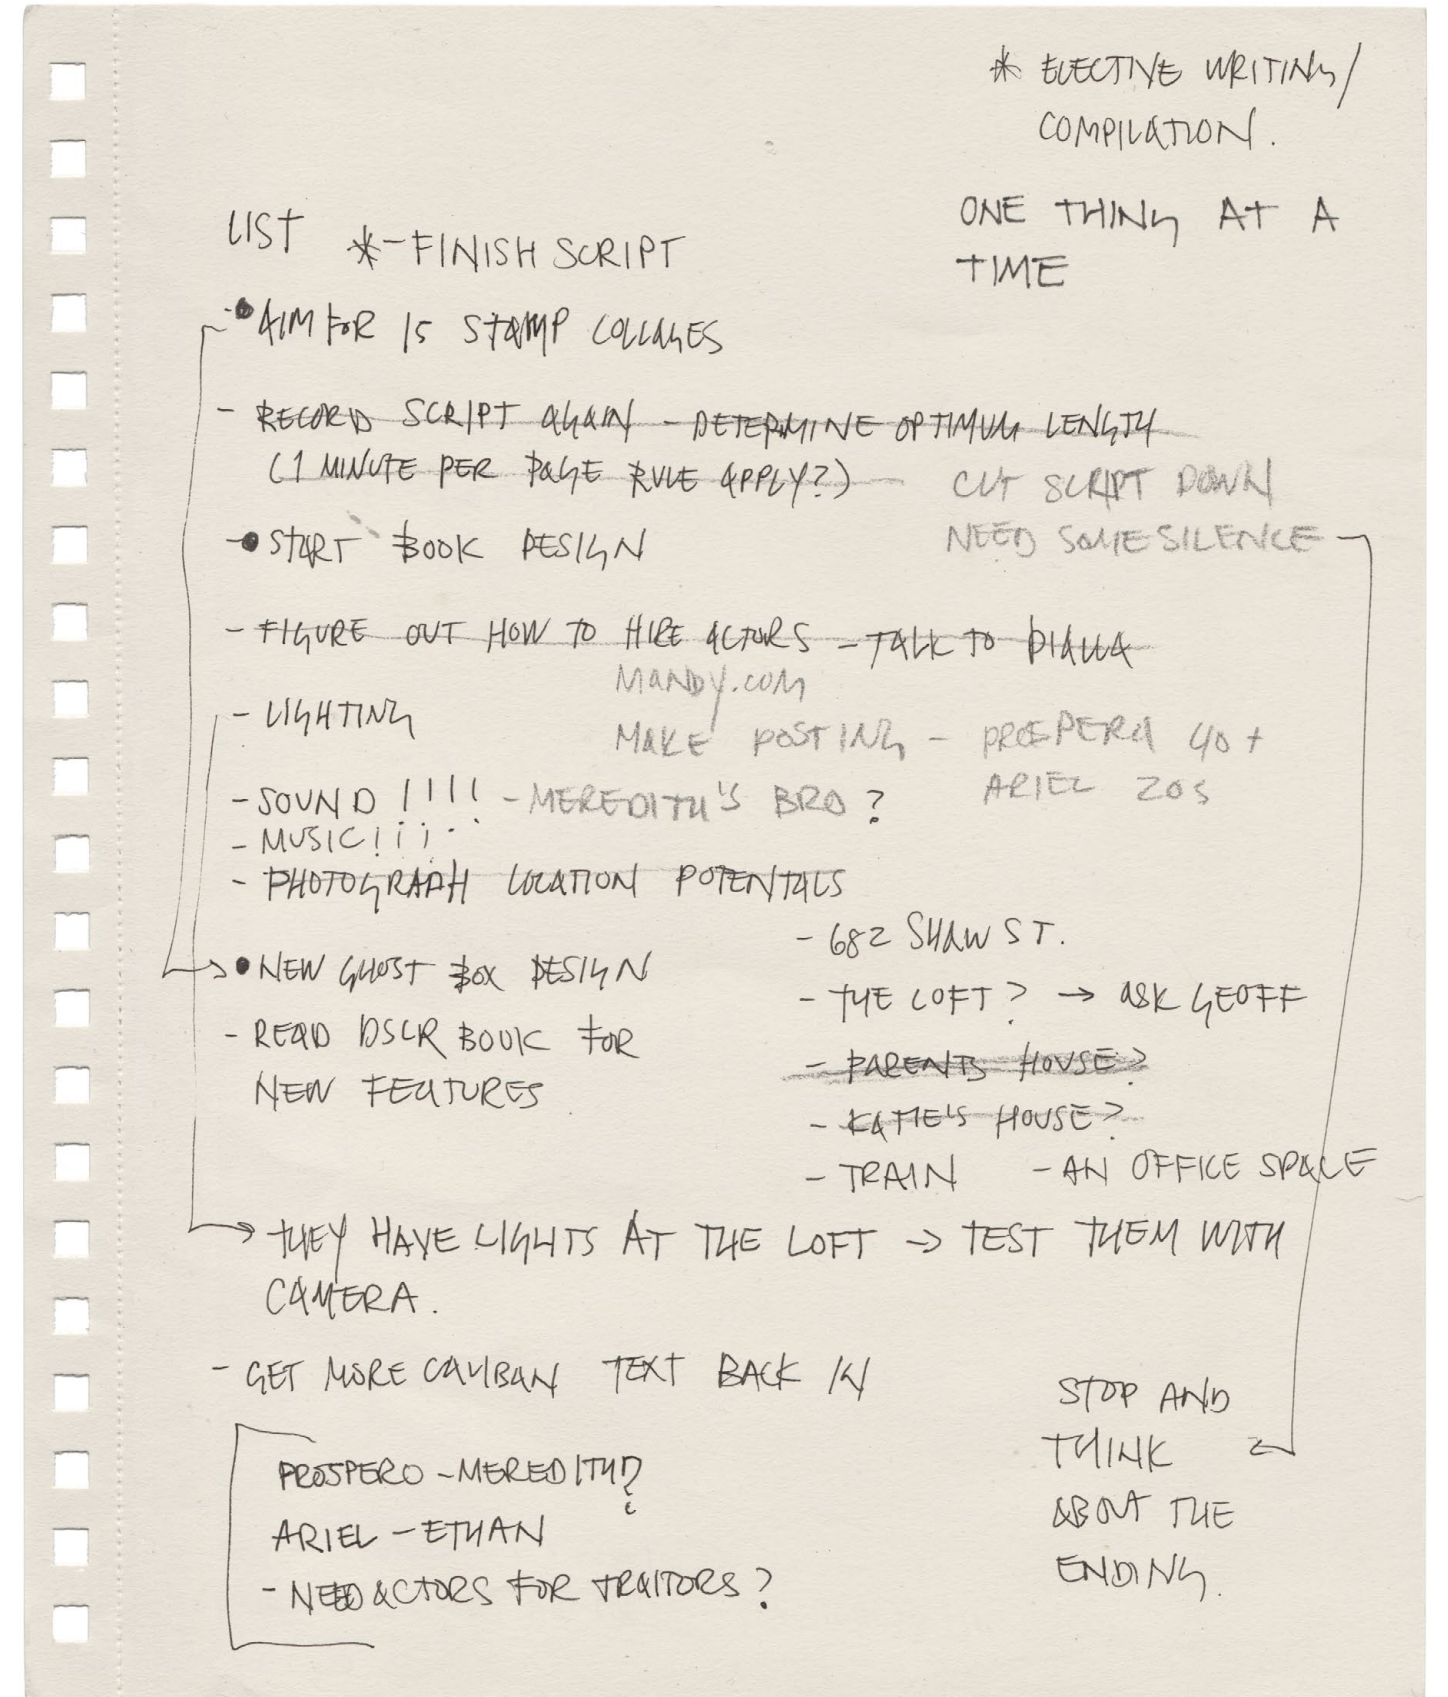 * ELECTIVE WRITING/
COMPILATION.
ONE THING AT A
TIME
LIST *-FINISH SCRIPT
- AIM FOR 15 STAMP COLLAGES
- RECORD SCRIPT AGAIN - DETERMINE OPTIMUM LENGTH
(1 MINUTE PER PAGE RULE APPLY?)
CUT SCRIPT DOWN
NEED SOME SILENCE
-• START BOOK DESIGN
- FIGURE OUT HOW TO HIRE ACTORS - TALK TO
MANDY.COM
- LIGHTING
MAKE POSTING - PROSPERA 40+
ARIEL 20S
- SOUND !!!! - MEREDITH'S BRO ?
- MUSIC!¡¡
- PHOTOGRAPH LOCATION POTENTALS
- 682 SHAW ST.
→• NEW GHOST BOX DESIGN
- THE LOFT? → ASK GEOFF
- READ DSLR BOOK FOR
NEW FEATURES
- PARENTS HOUSE?
- KATIE'S HOUSE?
- TRAIN - AN OFFICE SPACE
→ THEY HAVE LIGHTS AT THE LOFT → TEST THEM WITH
CAMERA.
- GET MORE CALIBAN TEXT BACK IN
PROSPERO - MEREDITH?
ARIEL - ETHAN
- NEED ACTORS FOR TRAITORS?
STOP AND
THINK
ABOUT THE
ENDING.